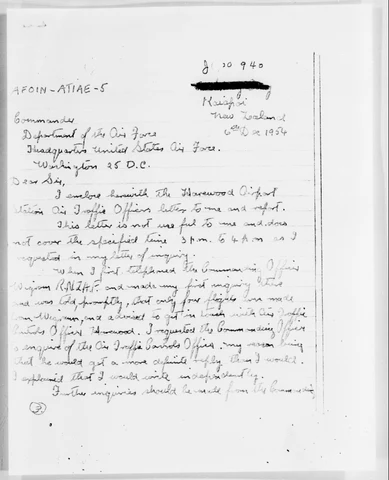 J 20 940
AFOIN-ATIAE-5
Kaiapoi
New Zealand
6th Dec 1954
Commander
Department of the Air Force
Headquarters United States Air Force.
Washington 25 D.C.
Dear Sir,
I enclose herewith the Harewood Airport
Air Traffic Officers letter to me and report.
This letter is not useful to me and does
not cover the specified time 3 pm. to 4 pm as I
requested in my letter of enquiry.
When I first telephoned the Commanding Officer
Wigram R.N.Z.A.F. and made my first inquiry
was told promptly, that only four flights were made
from Wigram, and advised to get in touch with Air Traffic
Controls Officer Harewood. I requested the Commanding Officer
to enquire of the Air Traffic Controls Officer, my reason being
that he would get a more definite reply than I would.
I explained that I would write independently.
Further enquiries should be made from the Commanding
2